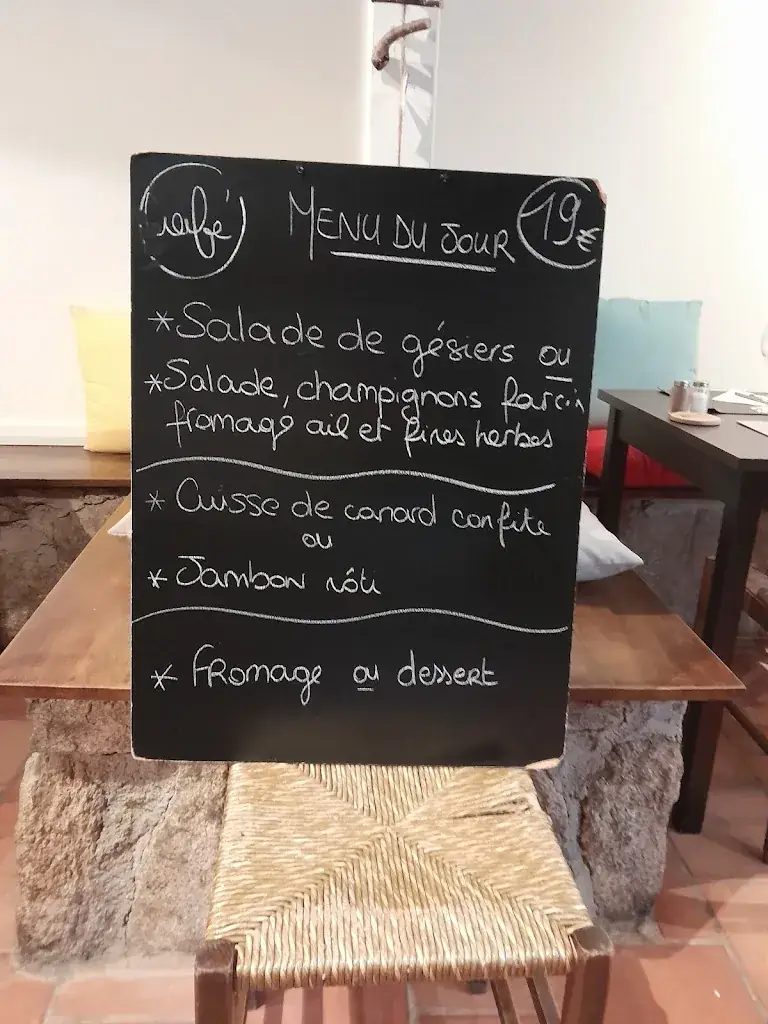 MENU DU JOUR
19€
*Salade de gésiers ou
*Salade, champignons farcis
fromage ail et fines herbes
* Cuisse de canard confite
ou
* Jambon rôti
* Fromage ou dessert